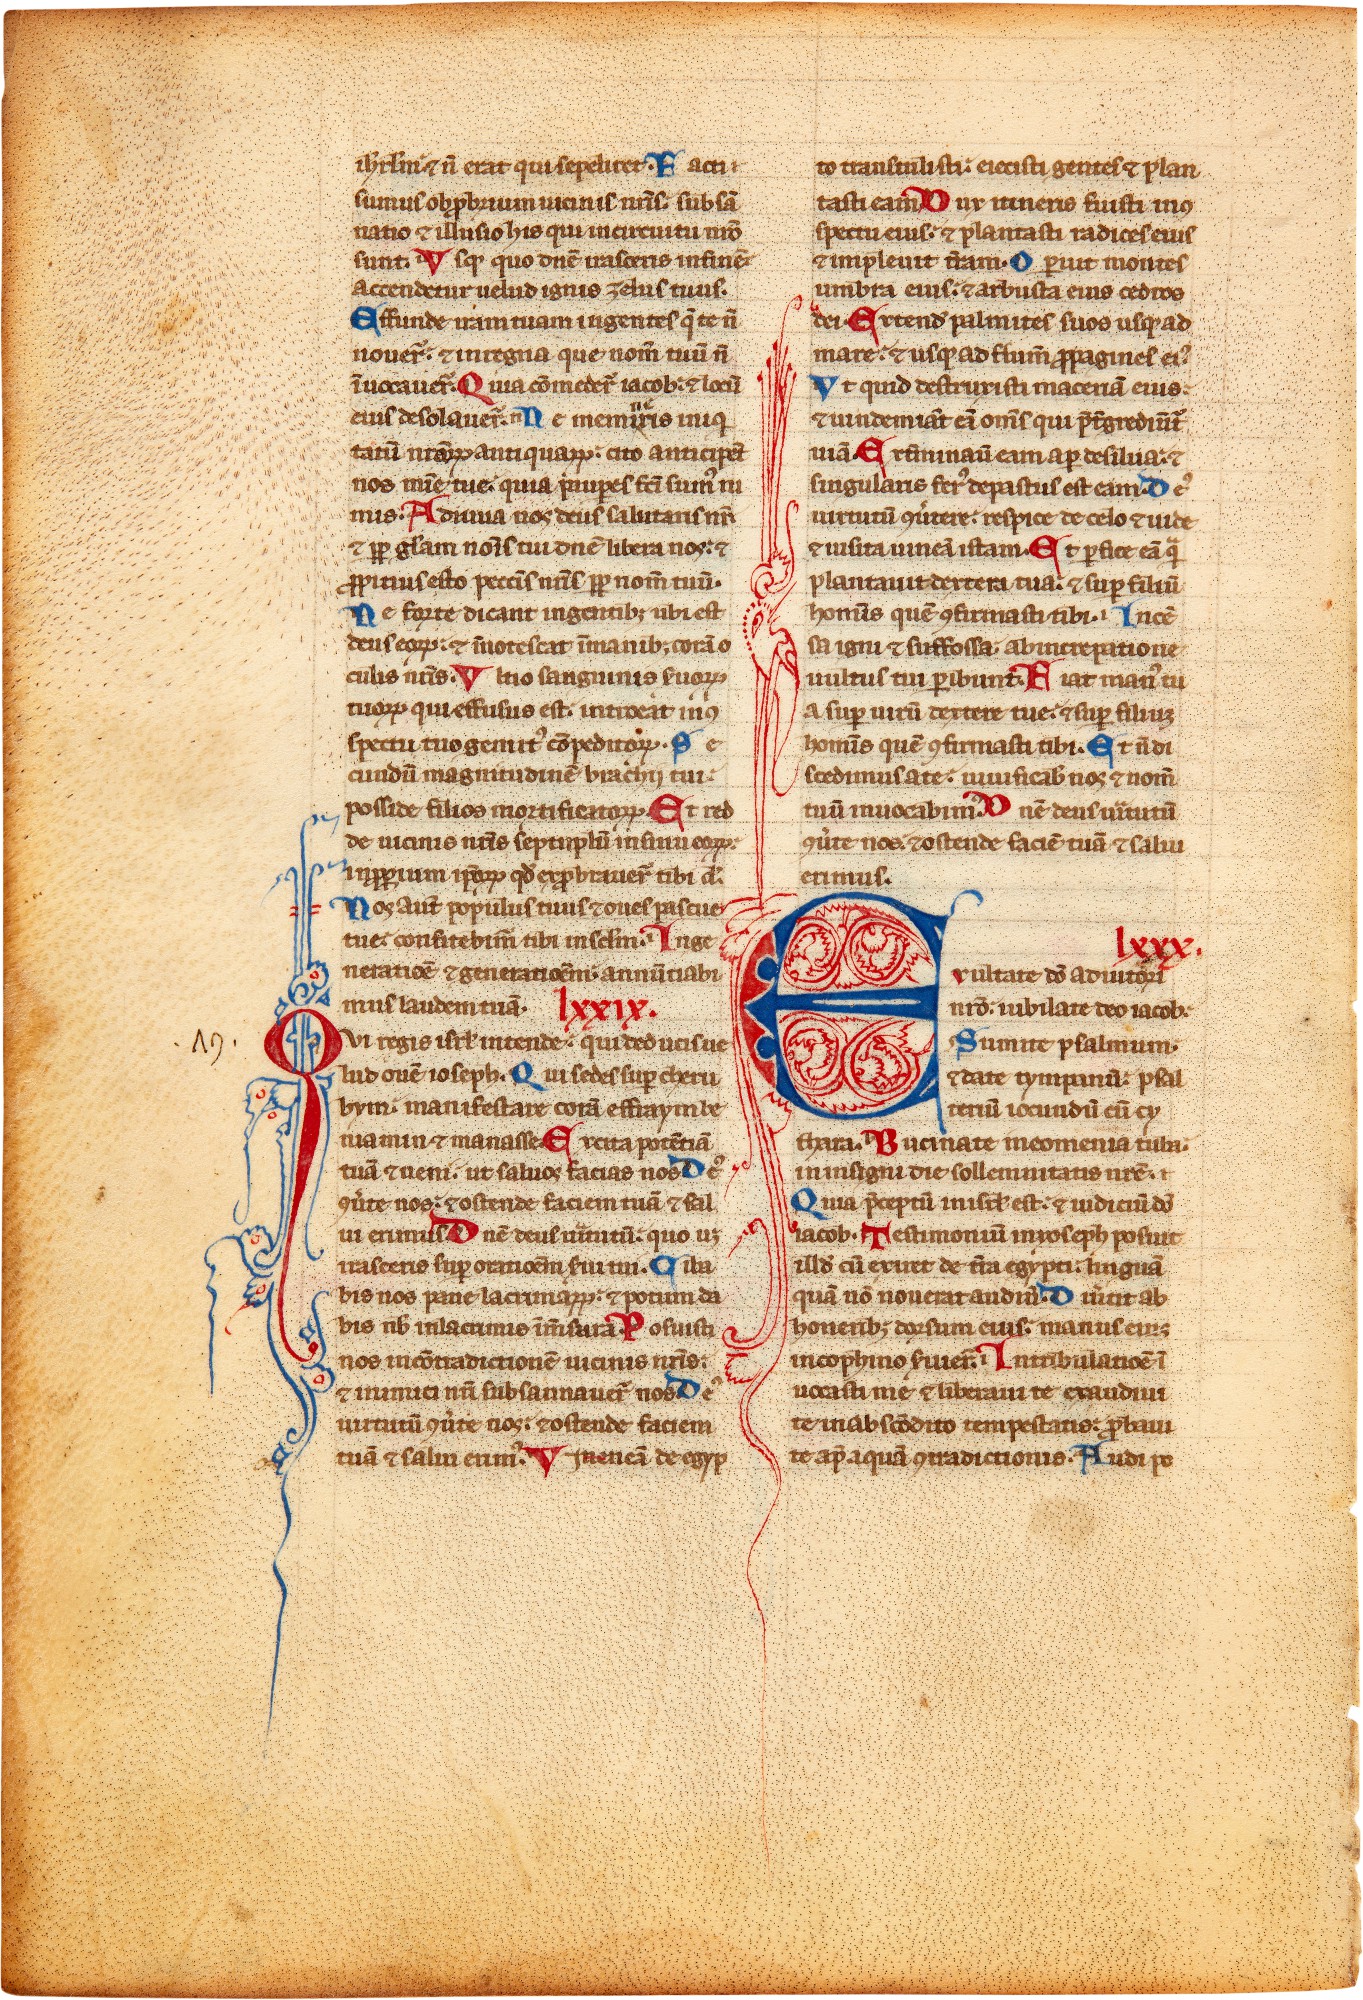 ihrl̄m· ⁊ n̄ erat qui sepeliret· Facti
sumus obp̱brium uicinis nr̄is: subsā
natio ⁊ illusio his qui in circuitu nr̄o
sunt. Vsq̄ quo dn̄e irasceris in finē:
accendetur uelud ignis zelus tuus.
Effunde irām tuam in gentes q̄ te n̄
nouer̄: ⁊ in regna que nom̄ tuū n̄
īuocauer̄. Quia cōmeder̄ iacob: ⁊ locū
eius desolauer̄. Ne memīeris iniq
tatū nr̄aꝝ antiquaꝝ: cito anticipēt
nos mīe tue: quia paup̱es fc̄i sumꝰ ni
mis. Adiuua nos deus salutaris nr̄:
⁊ ꝓp̱ glām nōis tui dn̄e libera nos: ⁊
ꝓpitius esto pecc̄is nr̄is ꝓp̱ nom̄ tuū.
Ne forte dicant in gentibꝫ ubi est
deus eoꝝ: ⁊ īnotescat ī nationibꝫ corā o
culis nr̄is. Vltio sanguinis seruoꝝ
tuoꝝ qui effusus est: introeat in ꝯ
spectu tuo gemitꝰ cōpeditoꝝ. Se
cundū magnitudinē brachij tui:
posside filios mortificatoꝝ. Et red
de uicinis nr̄is septuplū in sinu eoꝝ:
inp̱p̱ium ip̄oꝝ qđ exp̱brauer̄ tibi d̄e.
Nos aut̄ populus tuus ⁊ oues pascue
tue: confitebimꝰ tibi in sc̄lm̄. In ge
neratiōe ⁊ generatiōem: annūtiabi
mus laudem tuā. lxxix.
·19· QVi regis isrl̄ intende: qui deducis ue
lud ouē ioseph. Qui sedes sup̱ cheru
bym: manifestare corā effraym be
niamin ⁊ manasse. Excita potētiā
tuā ⁊ ueni: ut saluos facias nos. Deꝰ
ꝯu̇te nos: ⁊ ostende faciem tuā ⁊ sal
ui erimus. Dn̄e deus uirtutū: quo usꝫ
irasceris sup̱ oratiōem serui tui. Ciba
bis nos pane lacrimaꝝ: ⁊ potum da
bis nob̄ in lacrimis ī mēsura. Posuisti
nos in cōtradictionē uicinis nr̄is:
⁊ inimici nr̄i subsannauer̄ nos. Deꝰ
uirtutū ꝯu̇te nos: ⁊ ostende faciem
tuā ⁊ salui erimꝰ. Vineā de egyp
to transtulisti: eiecisti gentes ⁊ plan
tasti eam. Dux itineris fuisti in ꝯ
spectu eius: ⁊ plantasti radices eius
⁊ impleuit tr̄am. Operuit montes
umbra eius: ⁊ arbusta eius cedros
dei. Extendꝰ palmites suos usq̄ ad
mare: ⁊ usq̄ ad flum̄ ꝓpagines eiꝰ.
Vt quid destruxisti maceriā eius:
⁊ uindemiāt eā om̄s qui p̄t̄grediūt̄
uiā. Ext̄minauit eam ap̱ de silua: ⁊
singularis ferꝰ depastus est eam. Deꝰ
uirtutū ꝯu̇tere: respice de celo ⁊ uide
⁊ uisita uineā istam. Et p̱fice eā q̄
plantauit dextera tua: ⁊ sup̱ filiū
hominis quē ꝯfirmasti tibi. Incē
sa igni ⁊ suffossa: ab increpatione
uultus tui p̱ibunt. Fiat manꝰ tu
a sup̱ uirū dextere tue: ⁊ sup̱ filiuꝫ
hominis quē ꝯfirmasti tibi. Et n̄ di
scedimus a te: uiuificab̄ nos ⁊ nom̄
tuū inuocabimꝰ. Dn̄e deus uirtutū
ꝯu̇te nos: ⁊ ostende faciē tuā ⁊ salui
erimus.
lxxx.
Exultate dō adiutori
nr̄o: iubilate deo iacob.
Sumite psalmum
⁊ date tympanū: psal
teriū iocundū cū cy
thara. Bucinate in neomenia tuba:
in insigni die sollemnitatis nr̄e.
Quia p̄ceptū in isrl̄ est: ⁊ iudiciū dō
iacob. Testimoniū in ioseph posuit
illđ cū exiret de tr̄a egypti: linguā
quā nō nouerat audiuit. Diu̇tit ab
honeribꝫ dorsum eius: manus eius
in cophino seruier̄. In tribulatiōe ī
uocasti me ⁊ liberaui te: exaudiui
te in abscōdito tempestatis: p̱baui
te ap̱ aquā ꝯtradictionis. Audi po